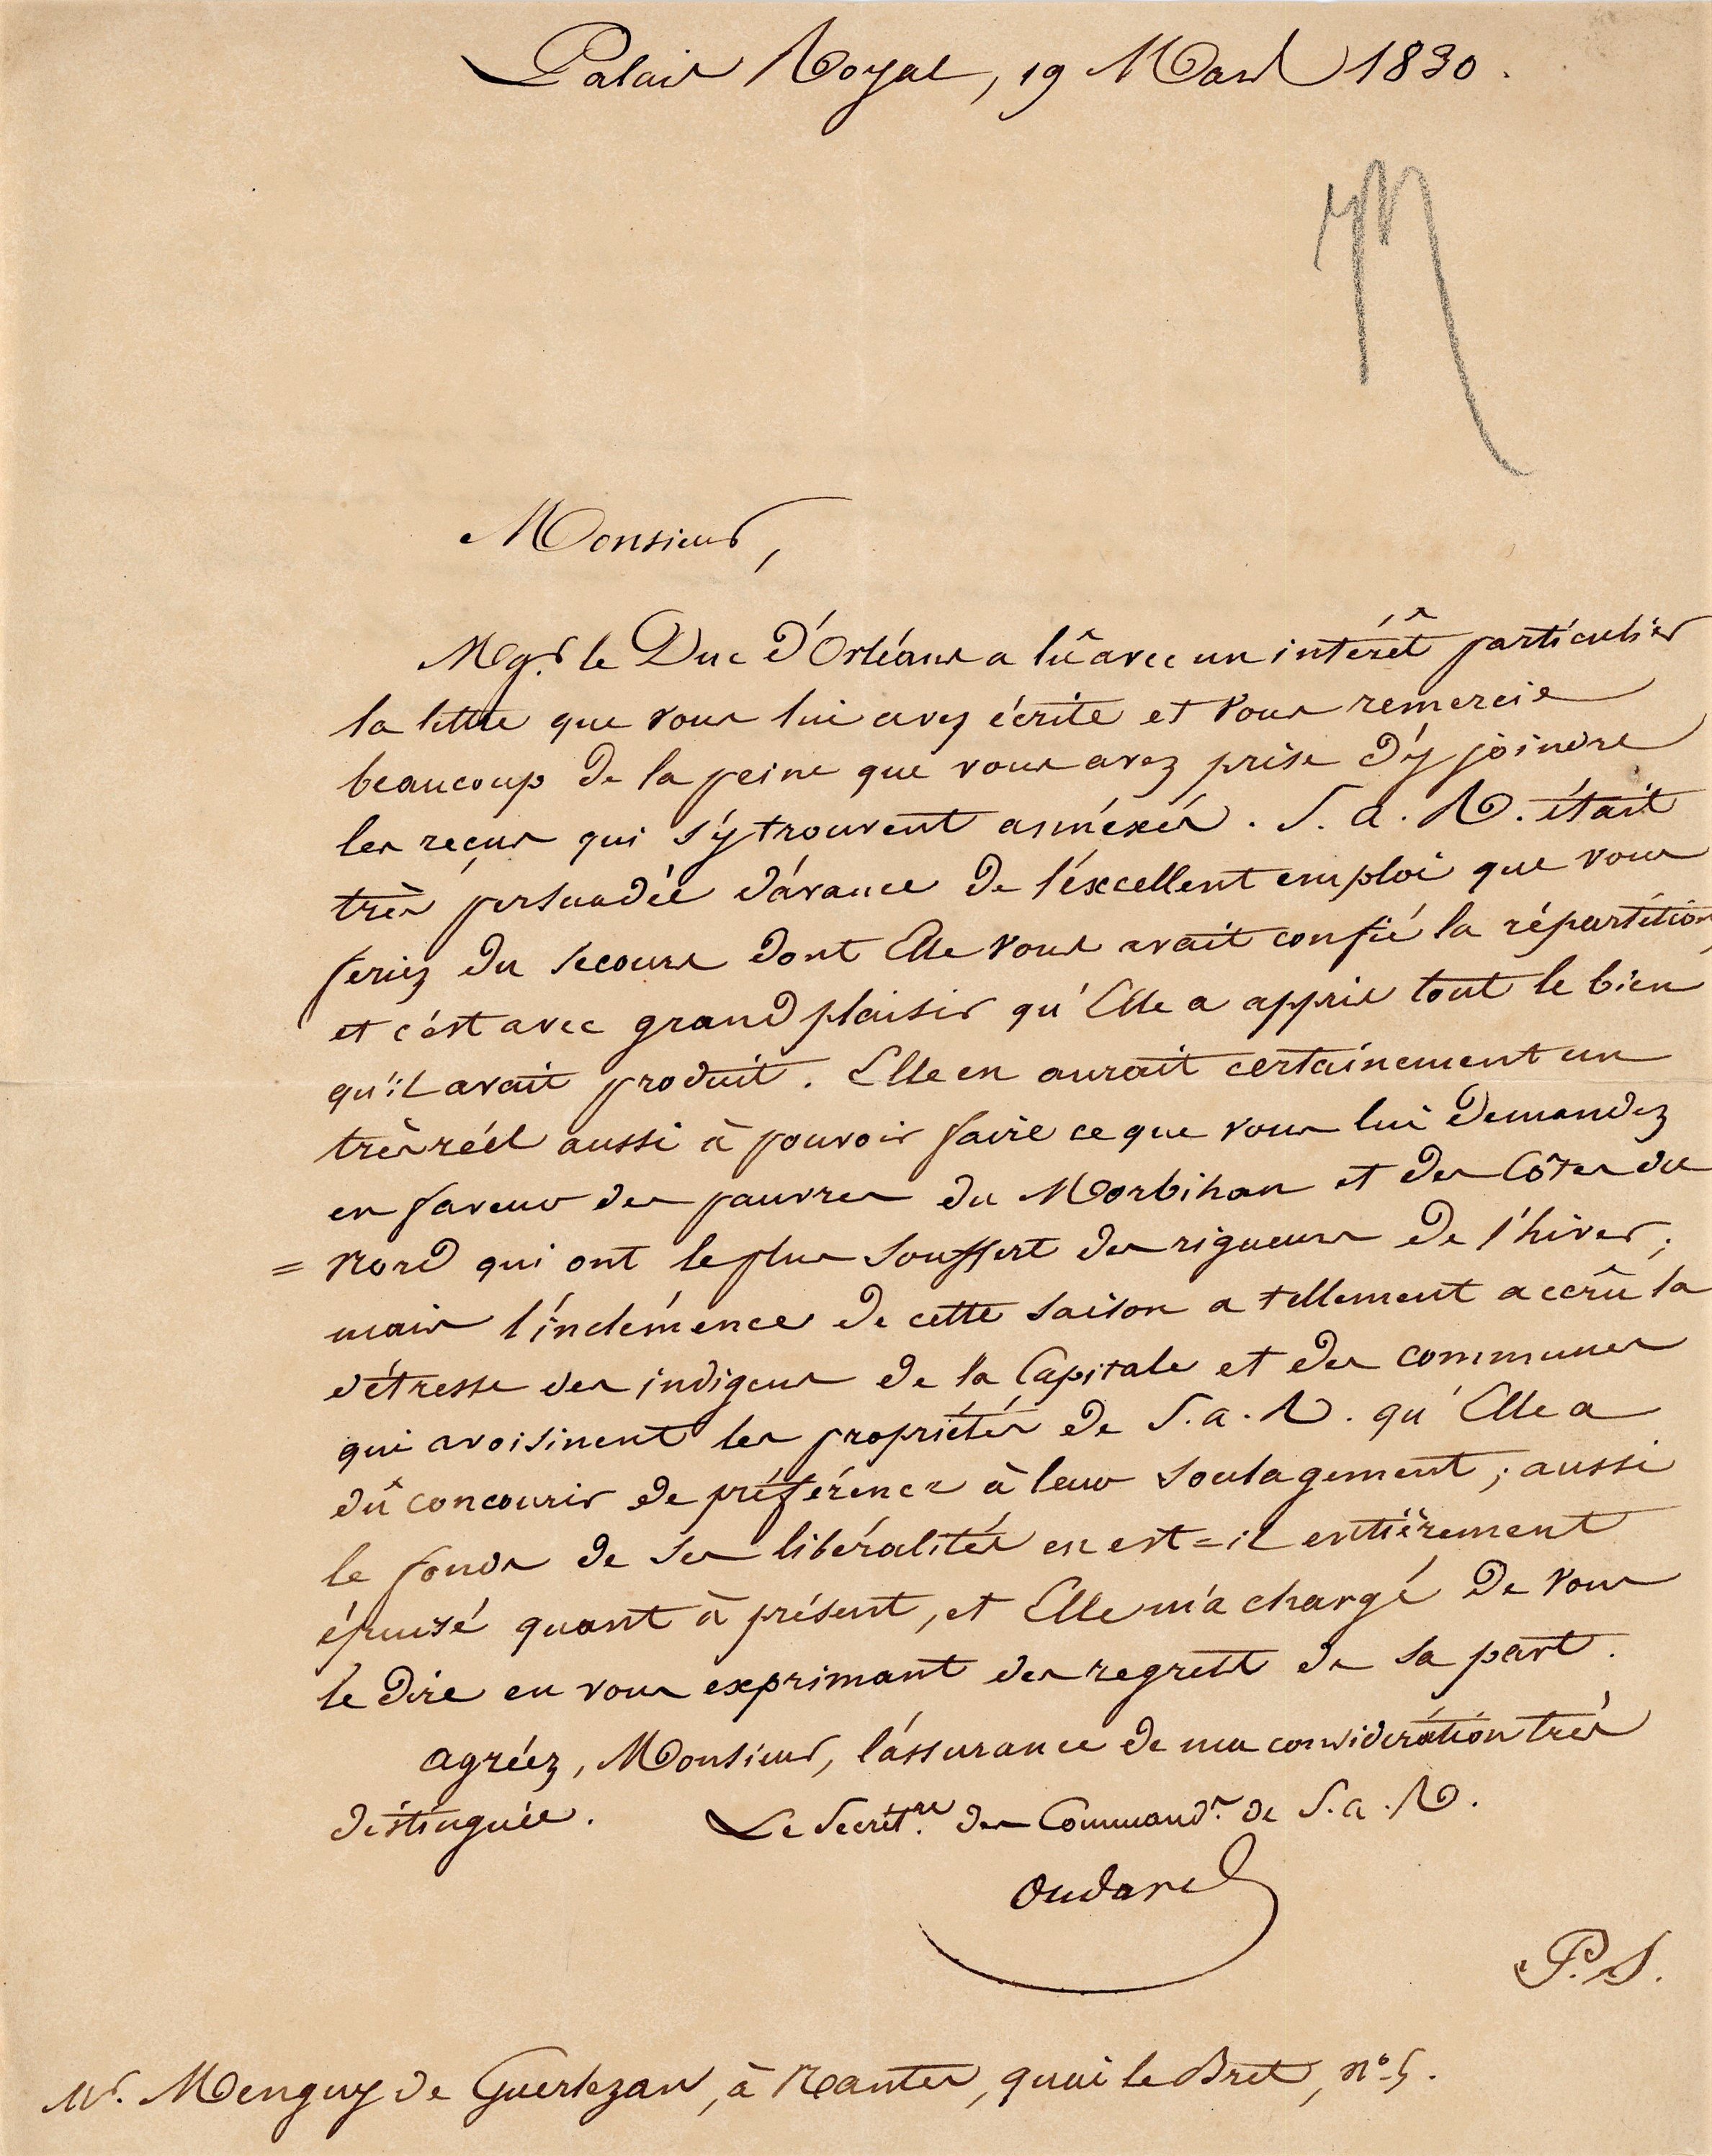 Palais Royal, 19 Mars 1830.
M
Monsieur,
Mgr. le Duc d'Orléans a lû avec un intérêt particulier
la lettre que vous lui avez écrite et vous remercie
beaucoup de la peine que vous avez prise d'y joindre
les reçus qui s'y trouvent annéxés. S. a. R. était
très persuadée d'avance de l'éxcellent emploi que vous
feriez du secours dont Elle vous avait confié la répartition,
et c'est avec grand plaisir qu'Elle a appris tout le bien
qu'il avait produit. Elle en aurait certainement un
très réel aussi à pouvoir faire ce que vous lui demandez
en faveur des pauvres du Morbihan et des Côtes du
= Nord qui ont le plus souffert des rigueurs de l'hiver;
mais l'inclémence de cette saison a tellement accrû la
détresse des indigens de la Capitale et des communes
qui avoisinent les propriétés de S. a. R. qu'Elle a
dû concourir de préférence à leur soulagement; aussi
le fonds de ses libéralités en est=il entièrement
épuisé quant à présent, et Elle m'a chargé de vous
le dire en vous exprimant des regrets de sa part.
agréez, Monsieur, l'assurance de ma considération très
distinguée. Le Secrét.re des Command.s de S. a. R.
Oudard
P.S.
Mr. Menguy de Guerlezan, à Nantes, quai le Bret, n° 5.